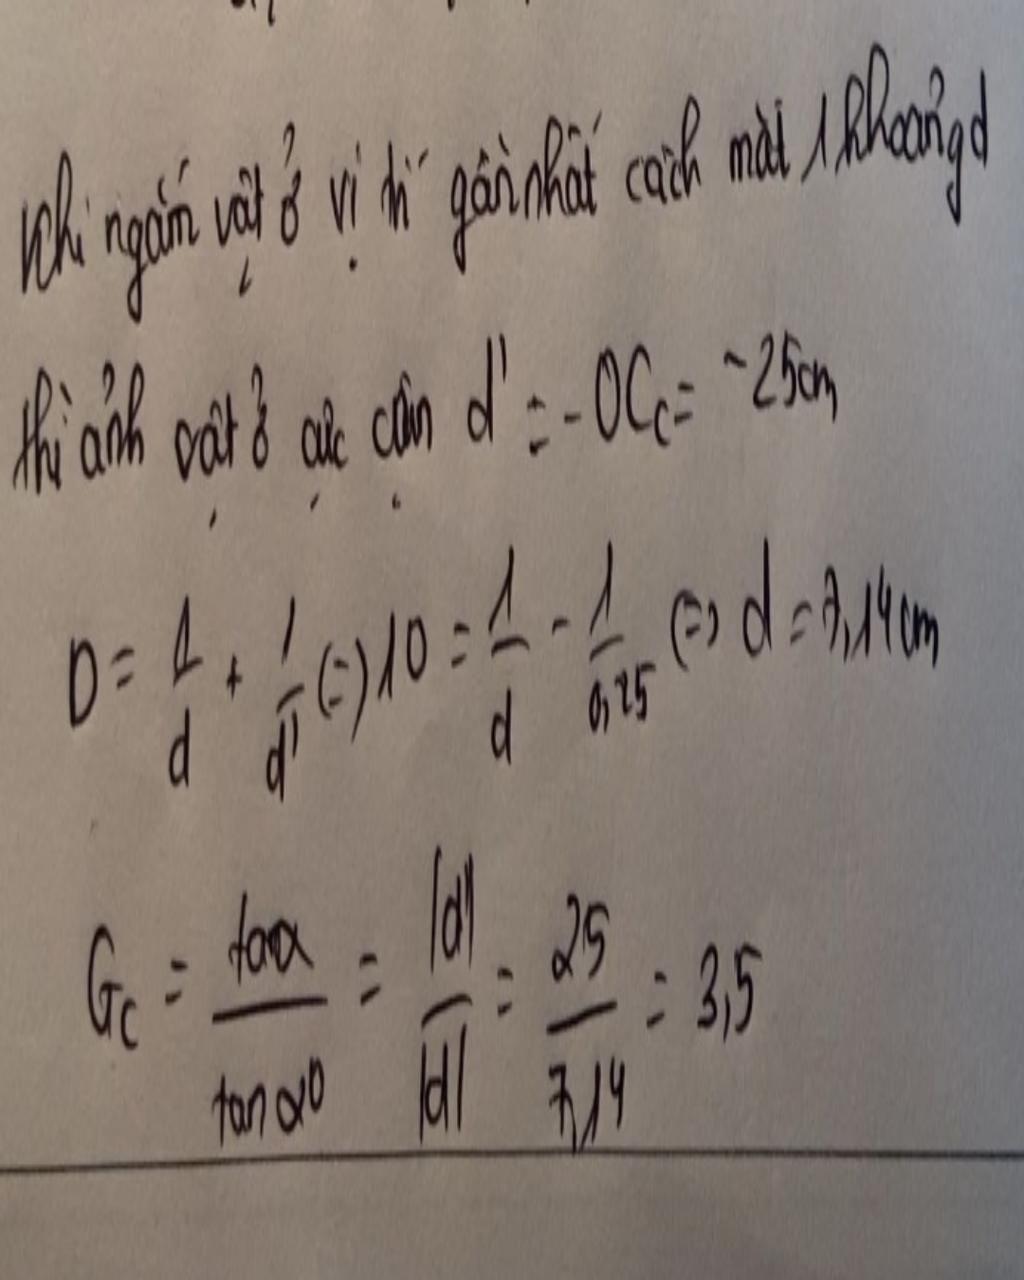 Khi ngắm vật ở vị trí gần nhất cách mắt 1 khoảng d
thì ảnh vật ở cực cận d' = -OCc = -25cm
D = 1/d + 1/d' (=) 10 = 1/d - 1/0,25 (=) d = 7,14cm
Gc = tanα/tanα0 = |d'|/|d| = 25/7,14 = 3,5